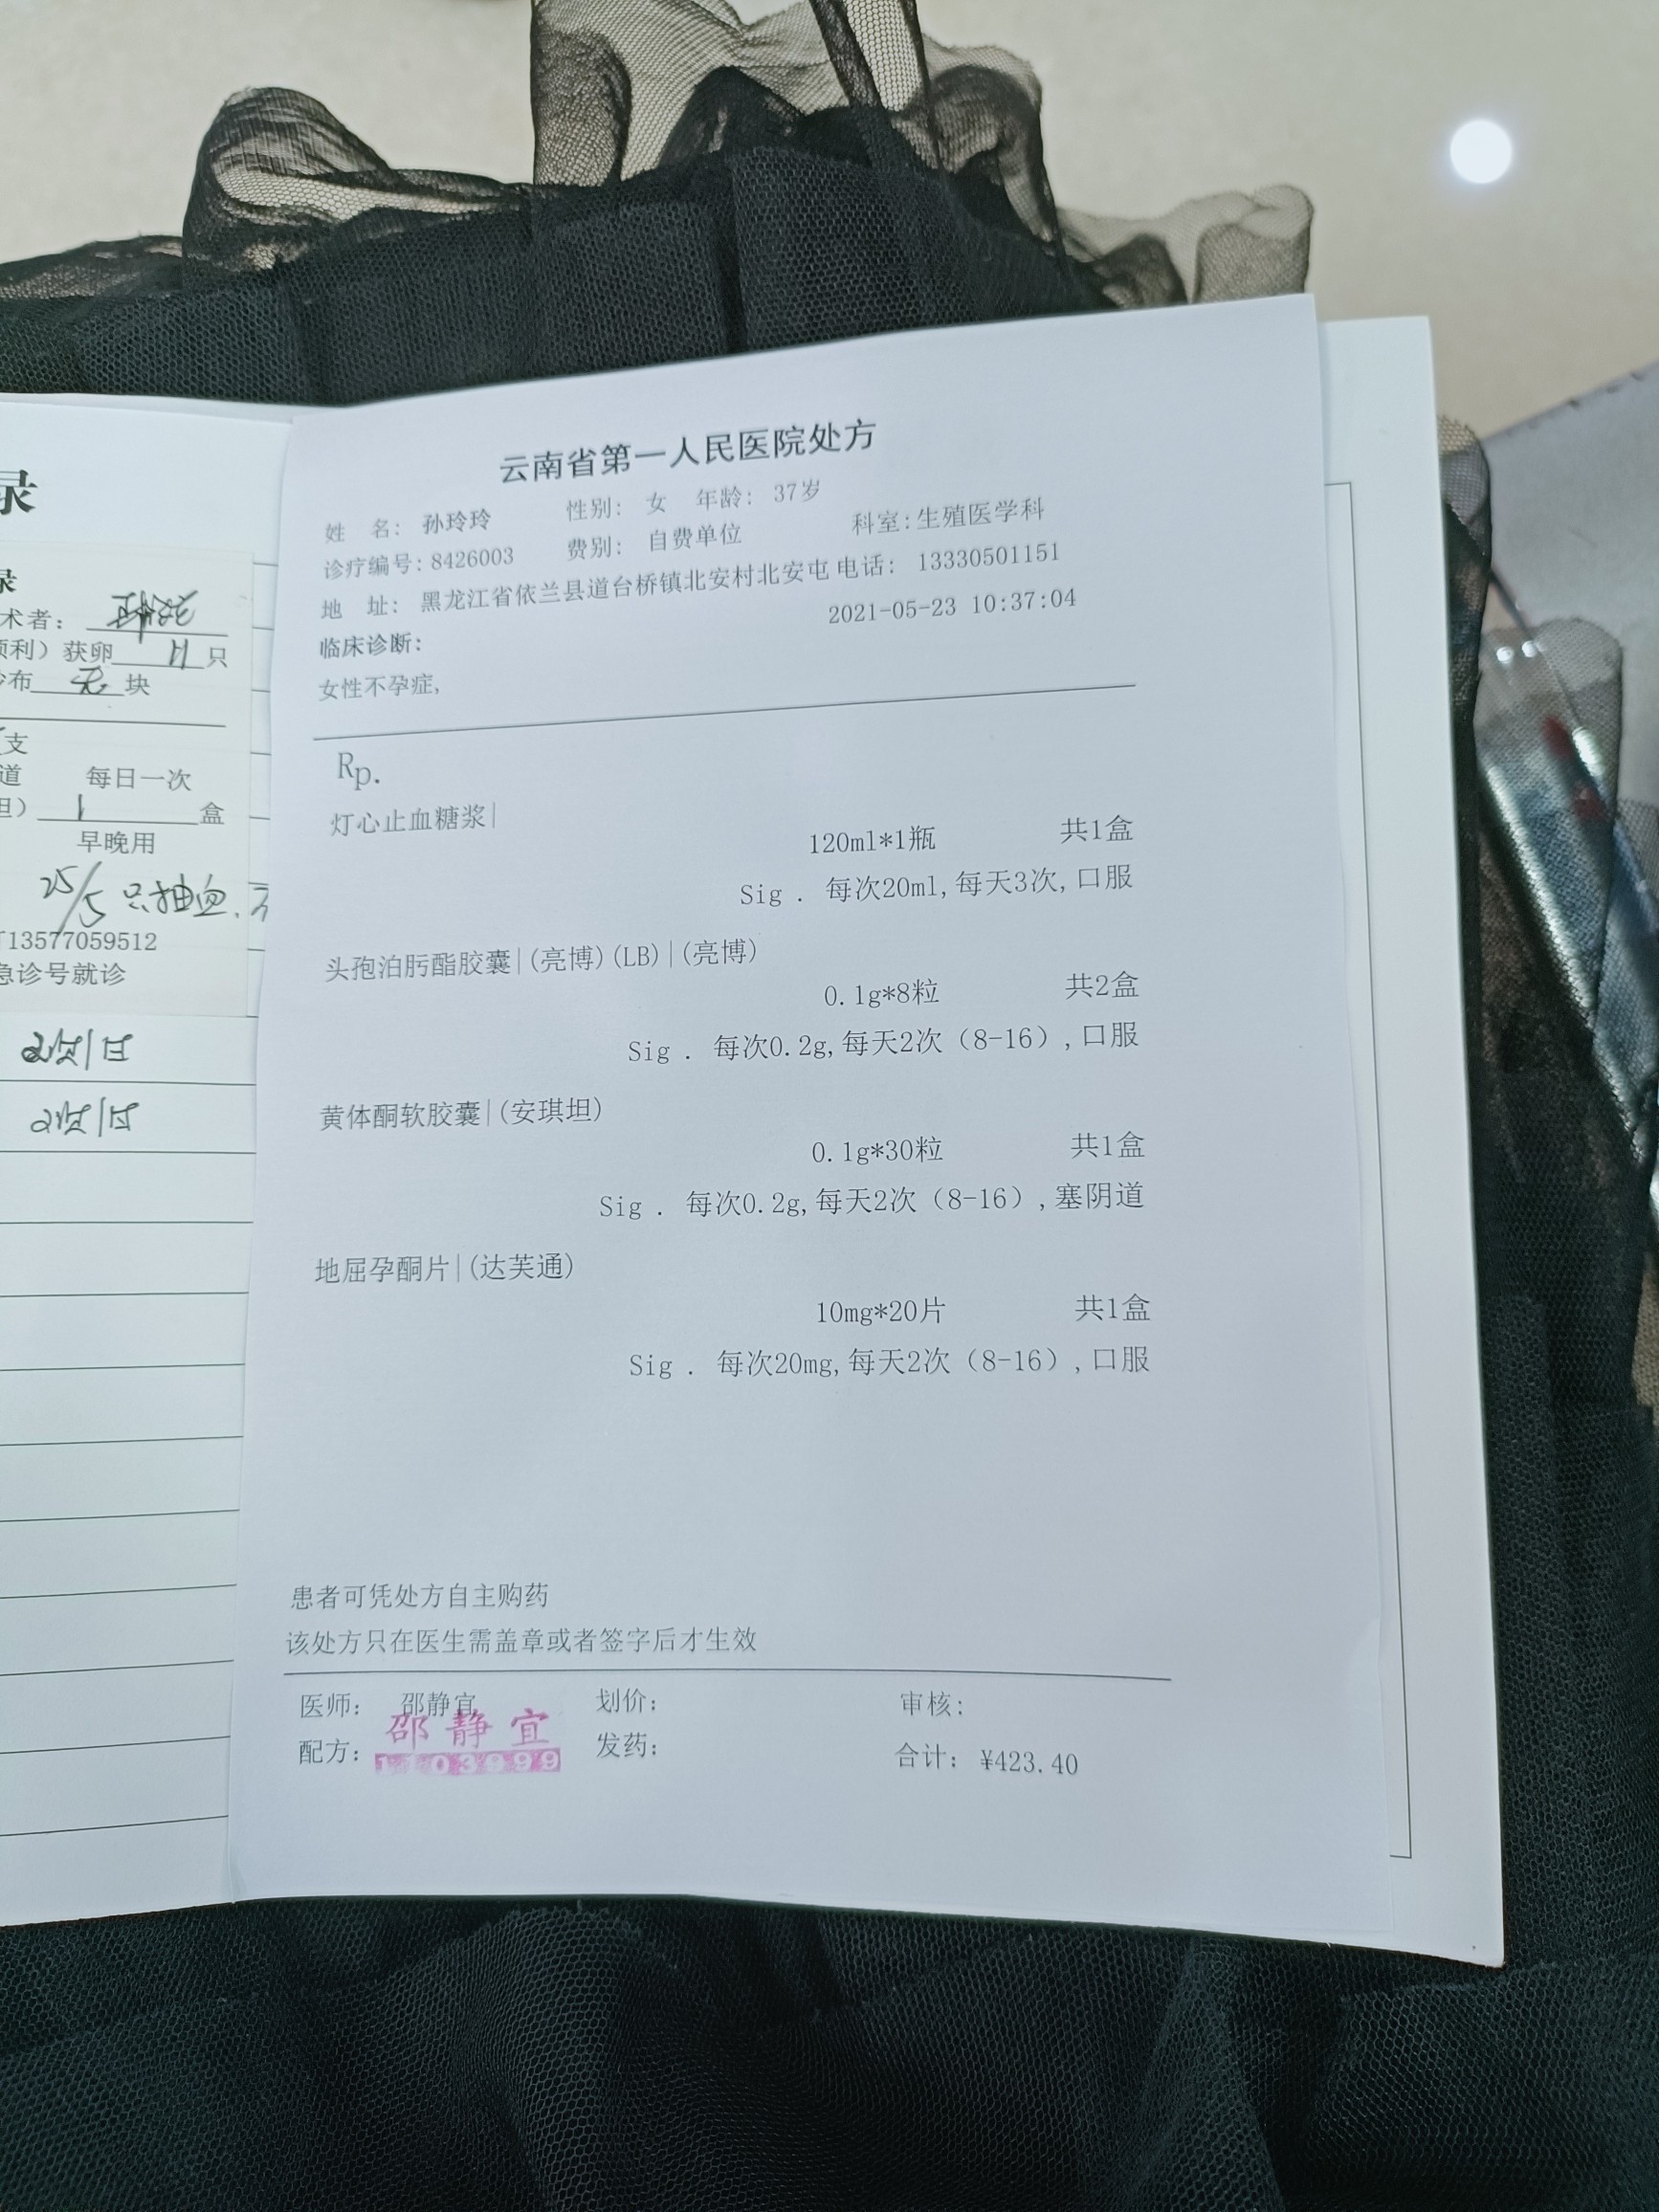 录
录
术者：
顺利）获卵 11 只
纱布 无 块
支
道 每日一次
坦） 1 盒
早晚用
25/5 只抽血.
13577059512
急诊号就诊
2次/日
2次/日
云南省第一人民医院处方
姓 名: 孙玲玲 性别: 女 年龄: 37岁
诊疗编号: 8426003 费别: 自费单位 科室: 生殖医学科
地 址: 黑龙江省依兰县道台桥镇北安村北安屯 电话: 13330501151
2021-05-23 10:37:04
临床诊断:
女性不孕症,
Rp.
灯心止血糖浆|
120ml*1瓶 共1盒
Sig . 每次20ml,每天3次,口服
头孢泊肟酯胶囊|(亮博)(LB)|(亮博)
0.1g*8粒 共2盒
Sig . 每次0.2g,每天2次（8-16）,口服
黄体酮软胶囊|(安琪坦)
0.1g*30粒 共1盒
Sig . 每次0.2g,每天2次（8-16）,塞阴道
地屈孕酮片|(达芙通)
10mg*20片 共1盒
Sig . 每次20mg,每天2次（8-16）,口服
患者可凭处方自主购药
该处方只在医生需盖章或者签字后才生效
医师: 邵静宜 划价: 审核:
邵静宜
配方: 发药: 合计: ¥423.40